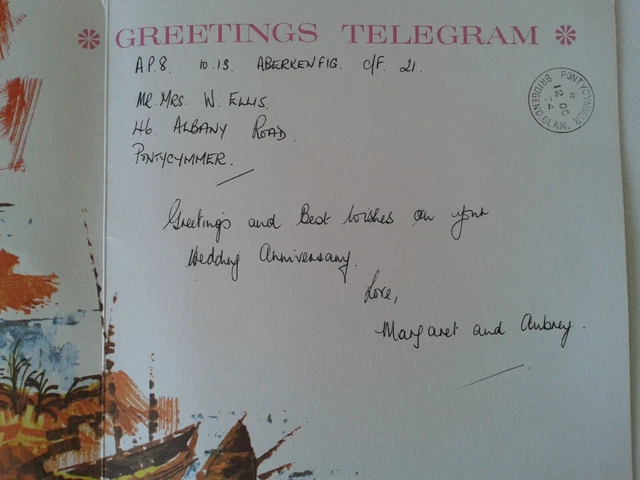 GREETINGS TELEGRAM
A.P.8. 10.13. ABERKENFIG. C/F. 21.
MR. MRS. W. ELLIS.
46. ALBANY ROAD.
PONTYCYMMER.
Greetings and Best Wishes on your
Wedding Anniversary.
Love,
Margaret and Aubrey.
PONTYCYMMER
*
12 OC
74
BRIDGEND GLAM.